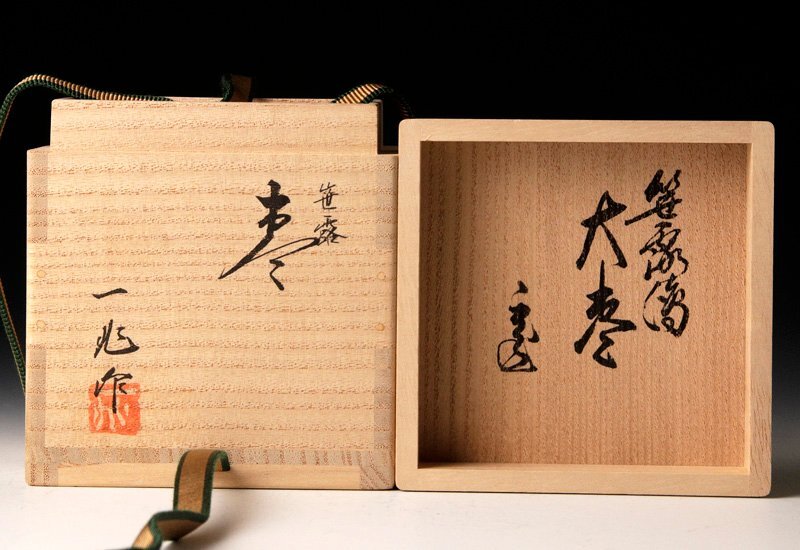 笹露
棗
一兆作
笹露蒔
大棗